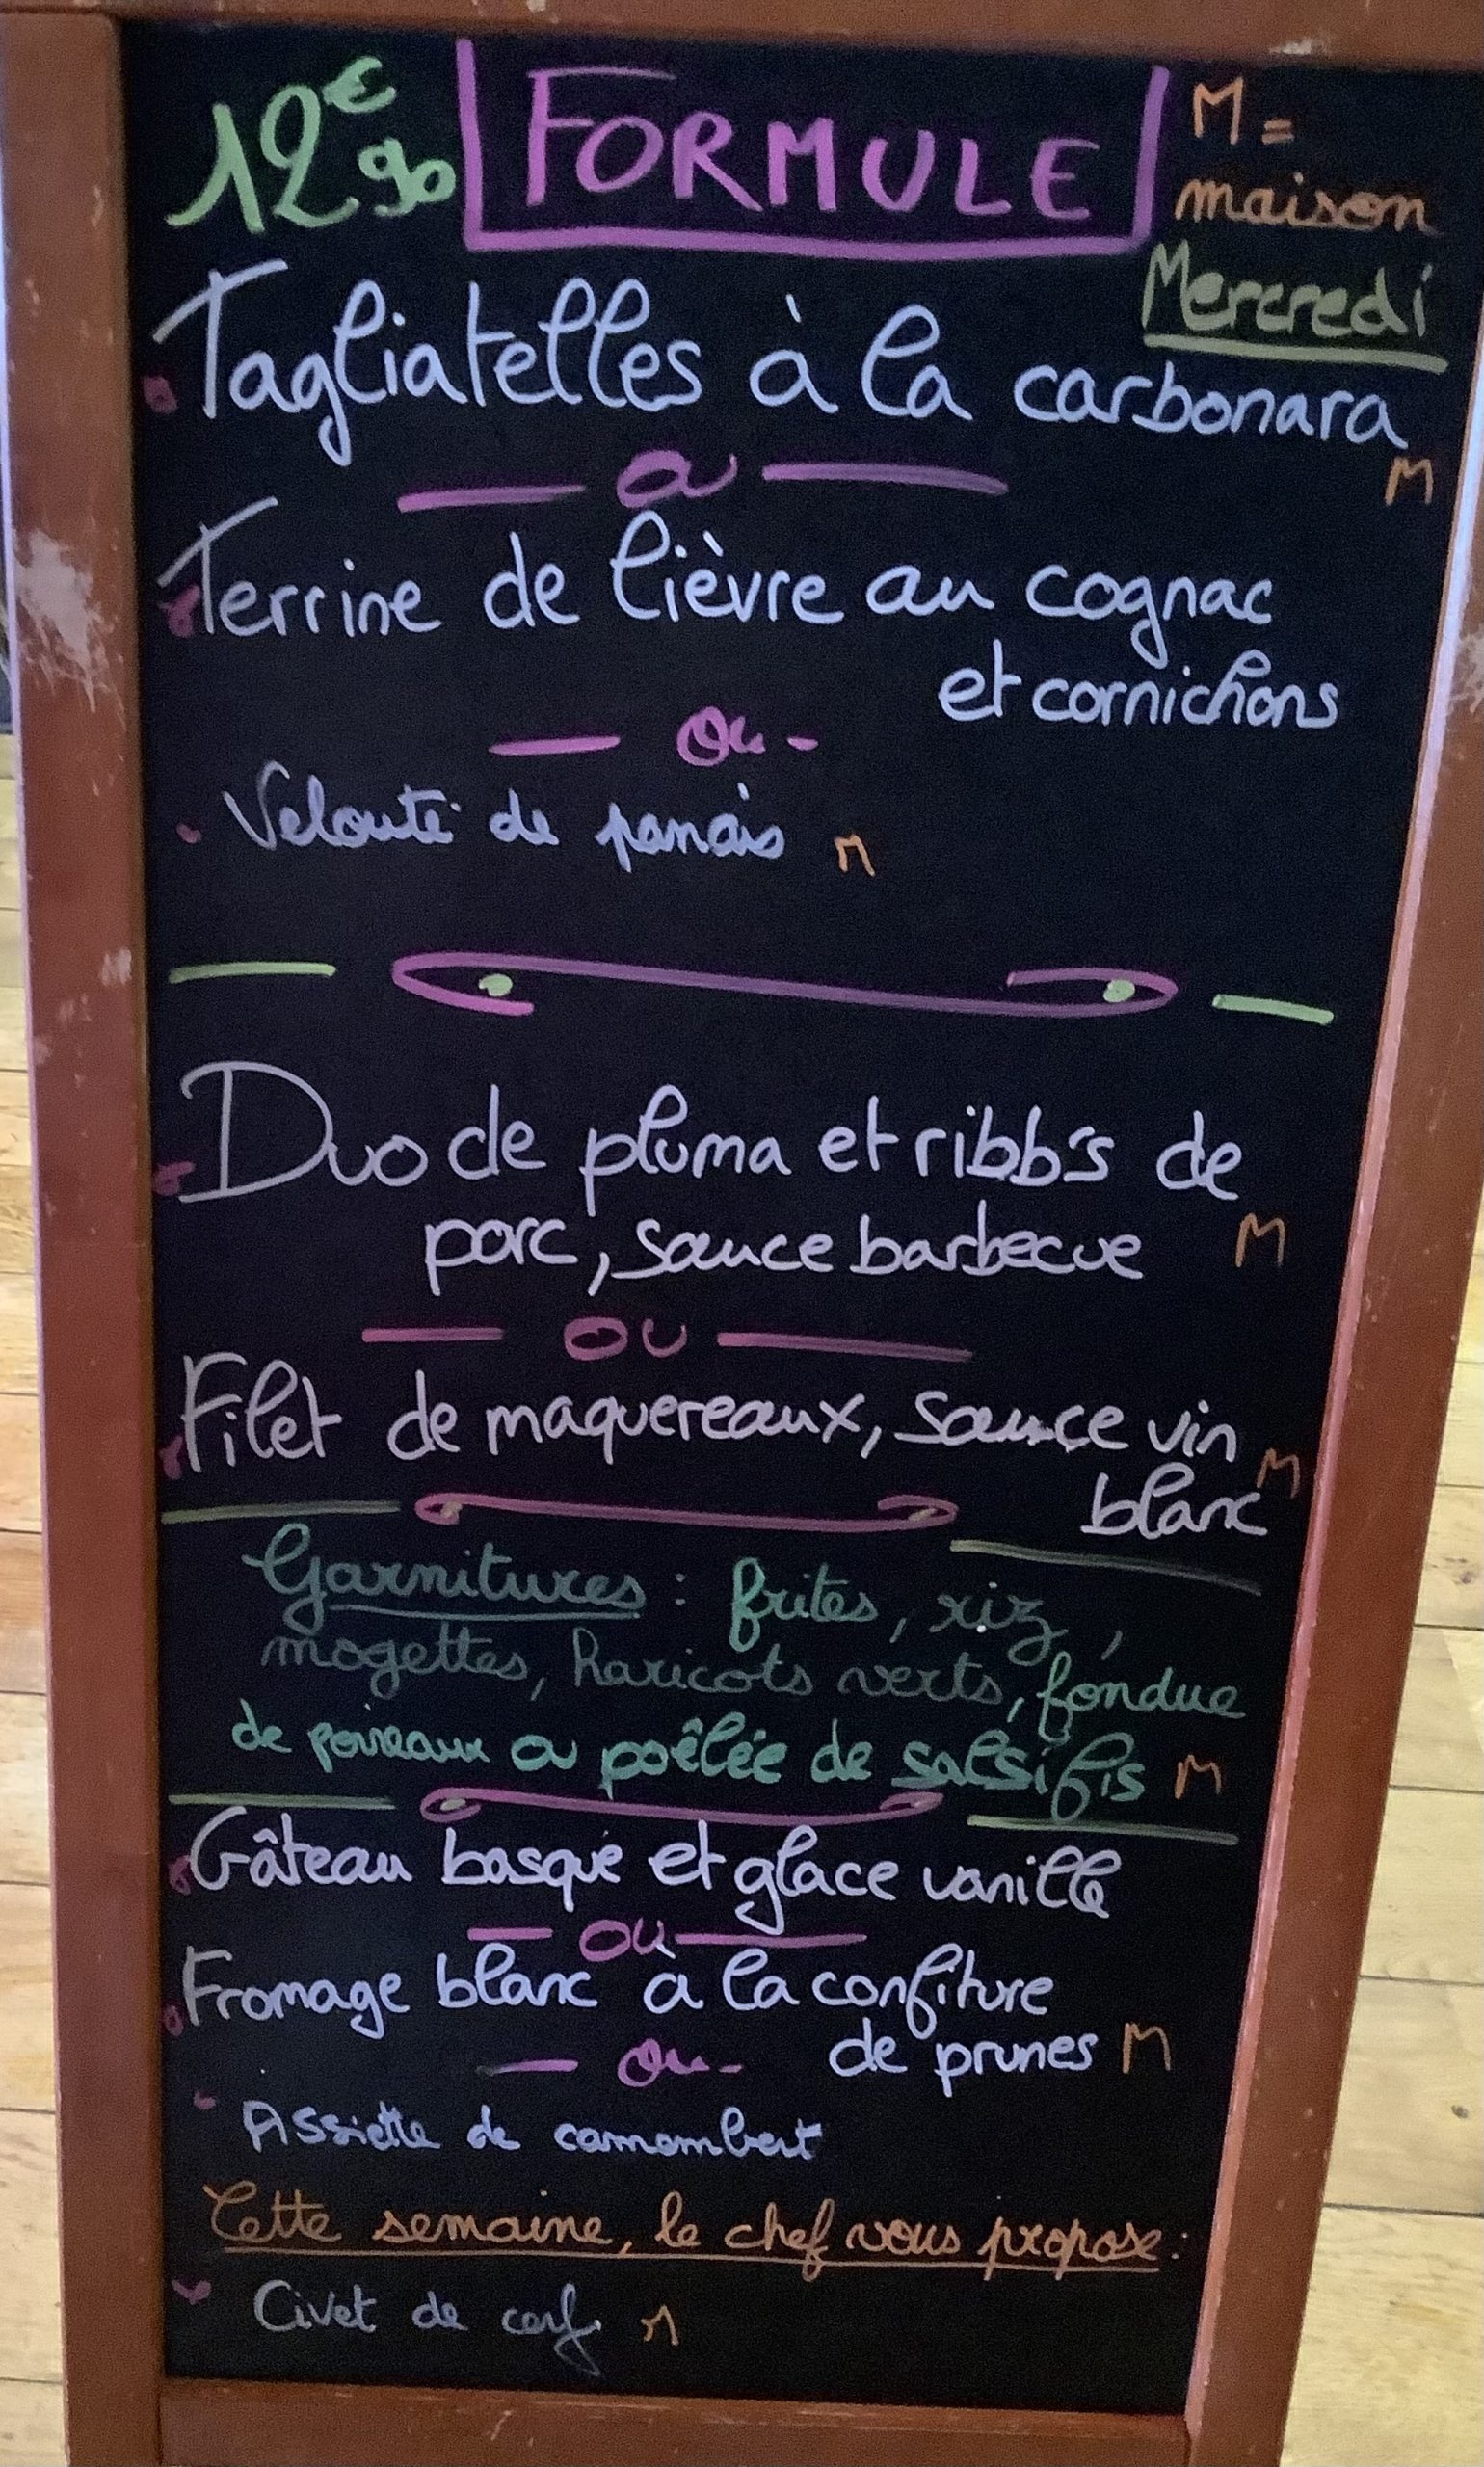 12€90 FORMULE M =
maison
Mercredi
Tagliatelles à la carbonara
M
ou
Terrine de lièvre au cognac
et cornichons
ou
Velouté de panais M
Duo de pluma et ribb's de
porc, sauce barbecue M
ou
Filet de maquereaux, sauce vin
blanc M
Garnitures : frites, riz,
mogettes, haricots verts, fondue
de poireaux ou poêlée de salsifis M
Gâteau basque et glace vanille
ou
Fromage blanc à la confiture
de prunes M
ou
Assiette de camembert
Cette semaine, le chef vous propose :
Civet de cerf M